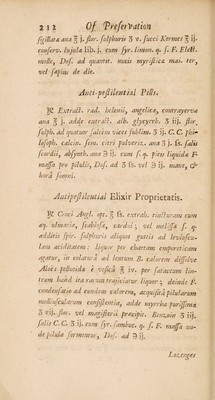 212 Of Preservation
sigillata ana ℥ j. flor. sulphuris ʒ v. succi Kermes ℥ ij.
conserv. Iujula lib. j. cum syr. limon. q. s. F. Elect.
molle, Dos. ad quantit. nucis myristicæ mai. ter,
vel sæpius de die.
Anti-pestilential Pills.
℞ Extract. rad. helenii, angelicæ, contrayerva
ana ℥ j. adde extract. alb. glycyrrh. ℥ iij. flor.
sulph. ad quatuor saltem vices sublim. ℥ ij. C. C. phi-
losoph. calcin. sem. citri pulveriz. ana ℥ j. ss. salis
scordii, absynth. ana ℈ ij. cum s. q. picis liquida F
massa pro pilulis, Dos. ad ℈ ss. vel ℈ ij. mane, &
hora somni.
Antipestilential Elixir Proprietatis.
℞ Croci Angl. opt. ℥ ss. extrah. tincturam cum
aq. ulmaria, scabiosa, cardui; vel melissa s. q.
additis spir. sulphuris aliquot guttis ad leviuscu-
lam aciditatem: liquor per chartam emporeticam
agatur, in colatura ad lentum B. calorem dissolve
Aloes pellucida è vesicâ ℥ iv. per satactum lin-
teum haud ita rarum trajiciatur liquor; deinde F.
condensatio ad eundem calorem, acquisitâ pilularum
molliuscularum consistentia, adde myrrhæ purissimæ
ʒ vij. flor. vel magisterii præcipit. Benzoin ʒ iij.
salis C. C. ʒ ij. cum syr. sambuc. q. s. F. massa un-
de pilulæ formentur, Dos. ad ℈ ij.
Lozenges